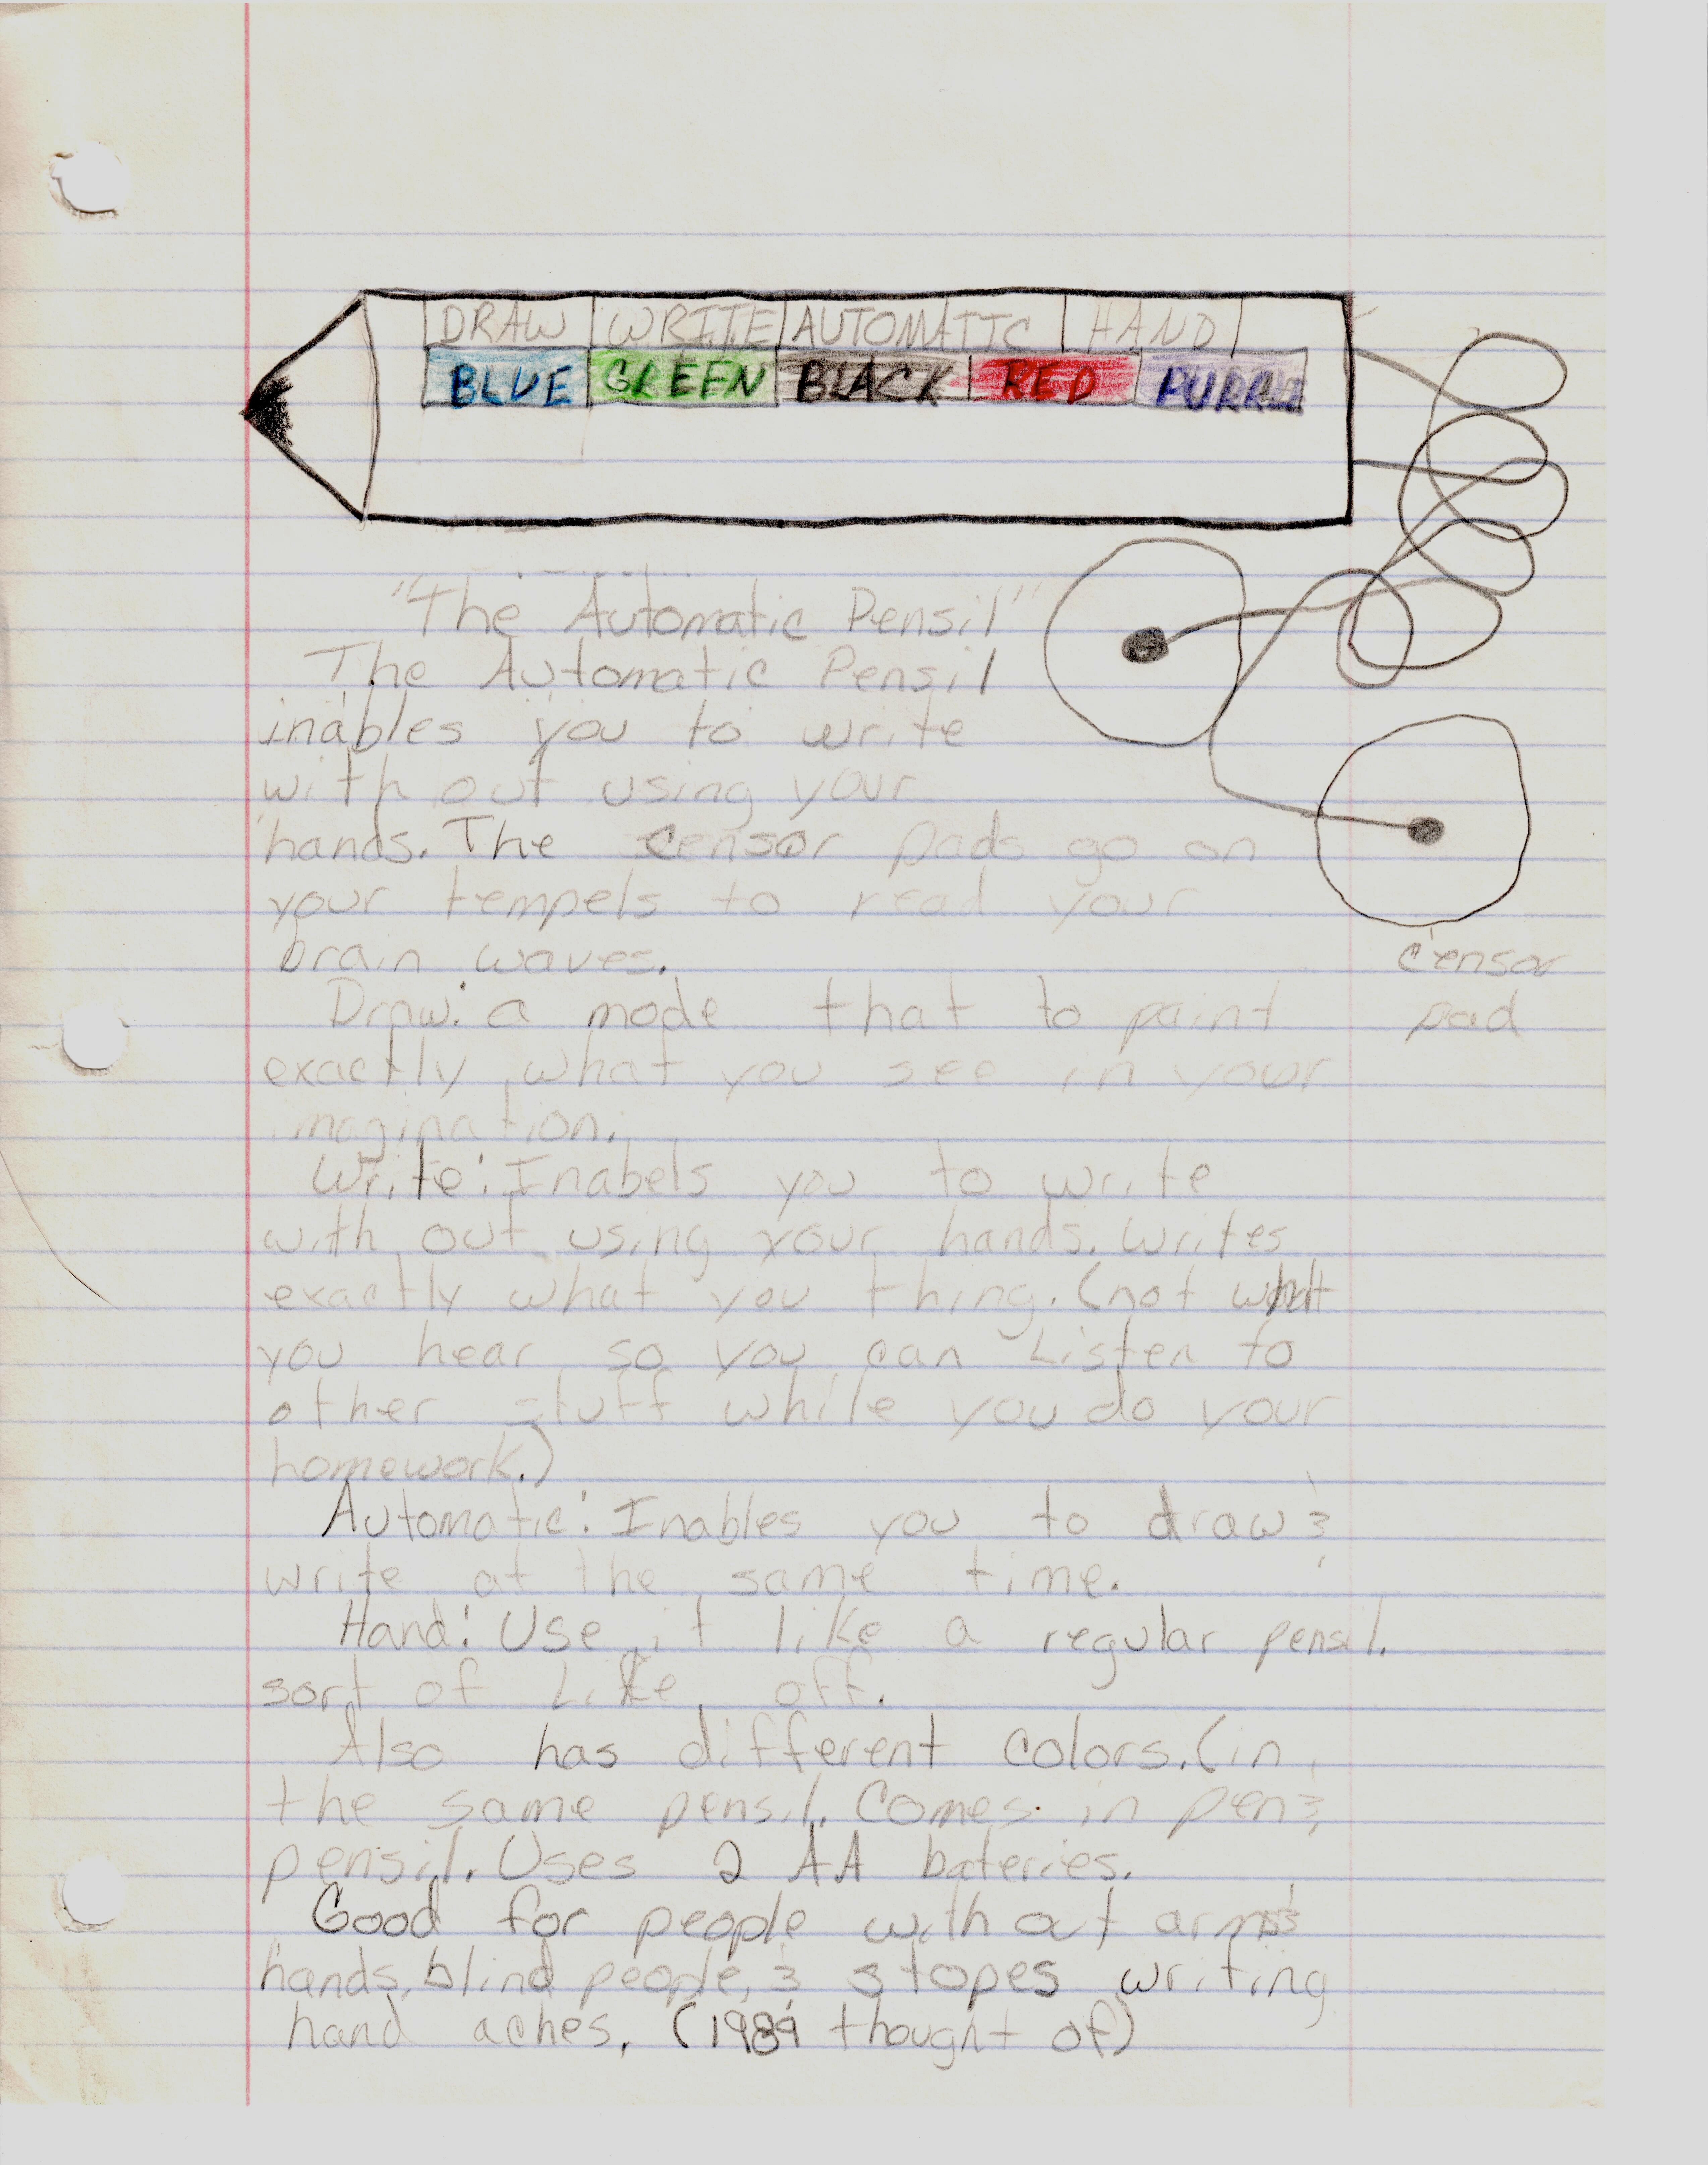 DRAW WRITE AUTOMATIC HAND
BLUE GREEN BLACK RED PURPLE
"The Automatic Pensil"
The Automatic Pensil
inables you to write
with out using your
hands. The censor pads go on
your tempels to read your
brain waves.
censor
pad
Draw: a mode that to paint
exactly what you see in your
imagination.
Write: Inabels you to write
with out using your hands. Writes
exactly what you thing. (not what
you hear so you can Listen to
other stuff while you do your
homework.)
Automatic: Inables you to draw &
write at the same time.
Hand: Use it like a regular pensil.
sort of Like off.
Also has different colors. (in
the same pensil. Comes in pen &
pensil. Uses 2 AA bateries.
Good for people with out arms &
hands, blind people, & stopes writing
hand aches. (1989 thought of)